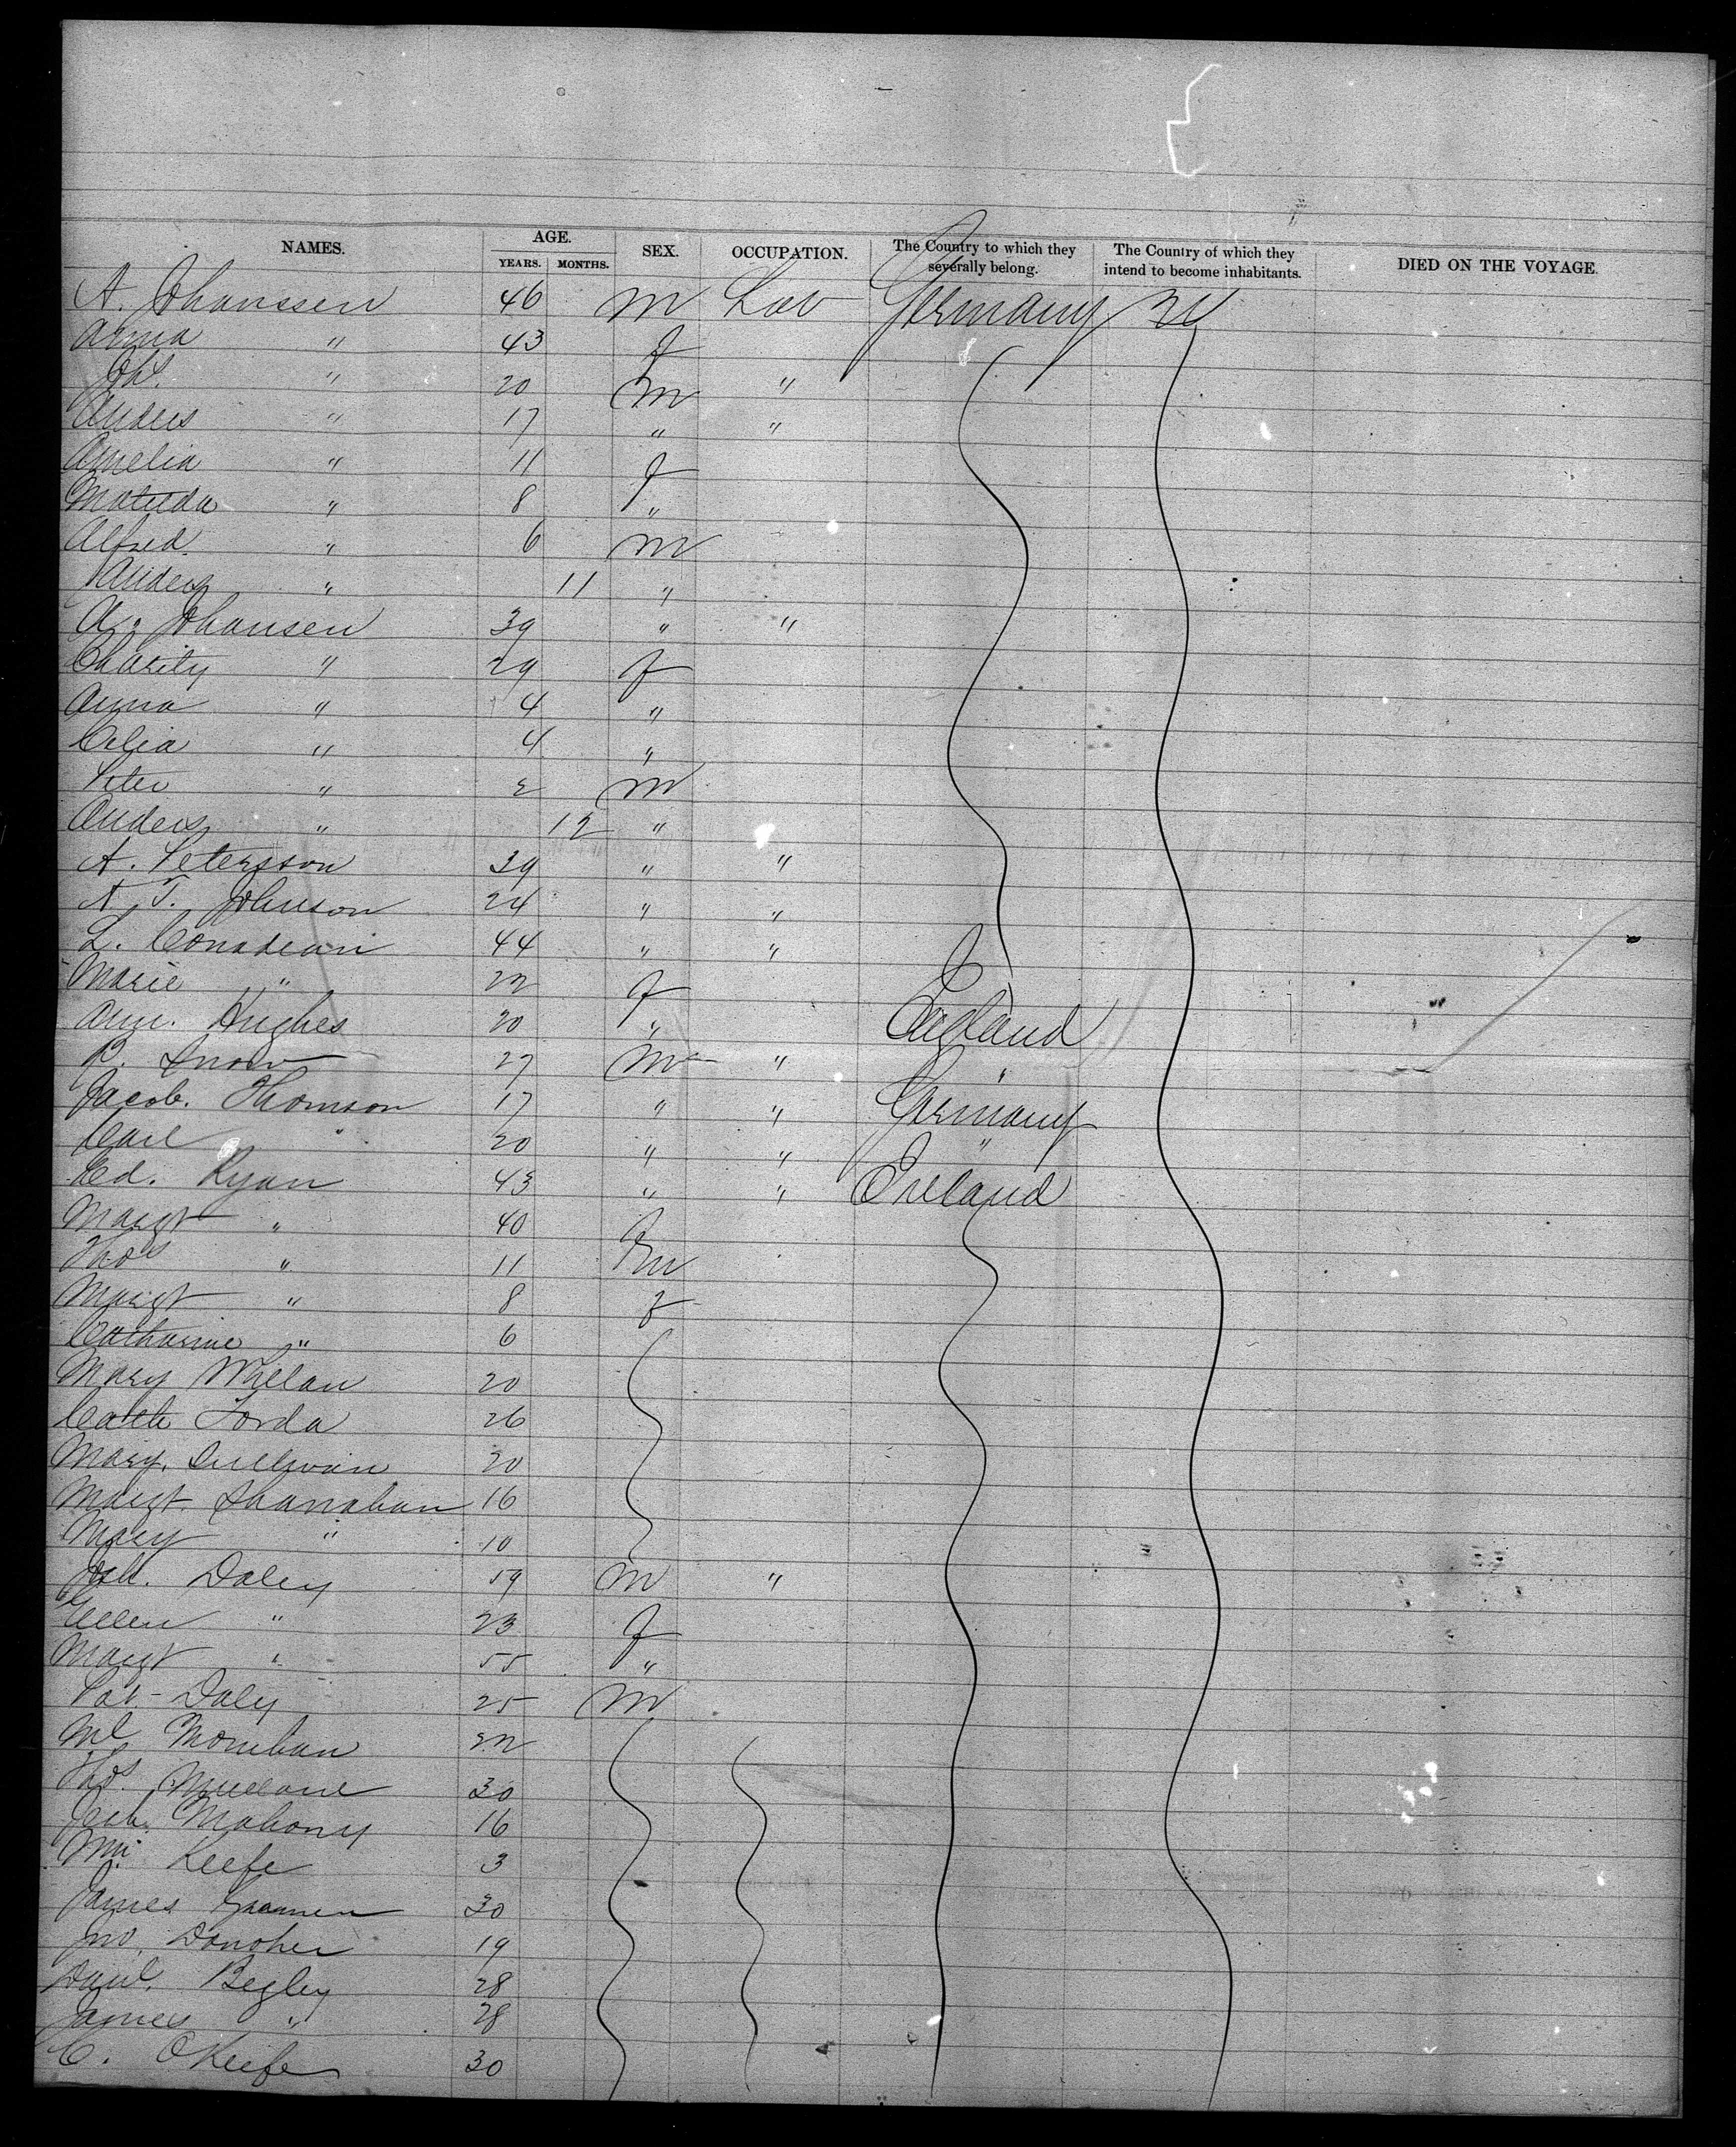 NAMES. AGE. YEARS. MONTHS. SEX. OCCUPATION. The Country to which they severally belong. The Country of which they intend to become inhabitants. DIED ON THE VOYAGE.
A. Johanssen 46 m Lab Germany
Anna " 43 f
Joh. " 20 m "
Anders " 17 " "
Amelia " 11 f
Matilda " 8 "
Alfred " 6 m
Anders " 11 "
A. Johansen 39 " "
Charity " 29 f
Anna " 4 "
Celia " 4 "
Peter " 2 m
Anders " 12 "
A. Petersson 39 " "
A. T. Johnson 24 " "
L. 44 " "
Marie " 22 f
Ann. Hughes 20 " England
P. Snow 27 m " "
Jacob. Thomson 17 " " Germany
Carl " 20 " " "
Ed. Ryan 43 " " Ireland
Margt " 40 f
Thos " 11 m
Margt " 8 f
Catharine " 6
Mary Whelan 20
Cath Forda 26
Mary. Sullivan 20
Margt Shanahan 16
Mary " 10
Daley 59 m "
Ellen " 23 f
Margt " 55 "
Pat Daly 25 m
Ml Monihan 22
Thos. Mullane 30
Mahony 16
Keefe 3
James 30
Jno. Donoher 19
Danl. Begley 28
James " 28
C. OKeefe 30